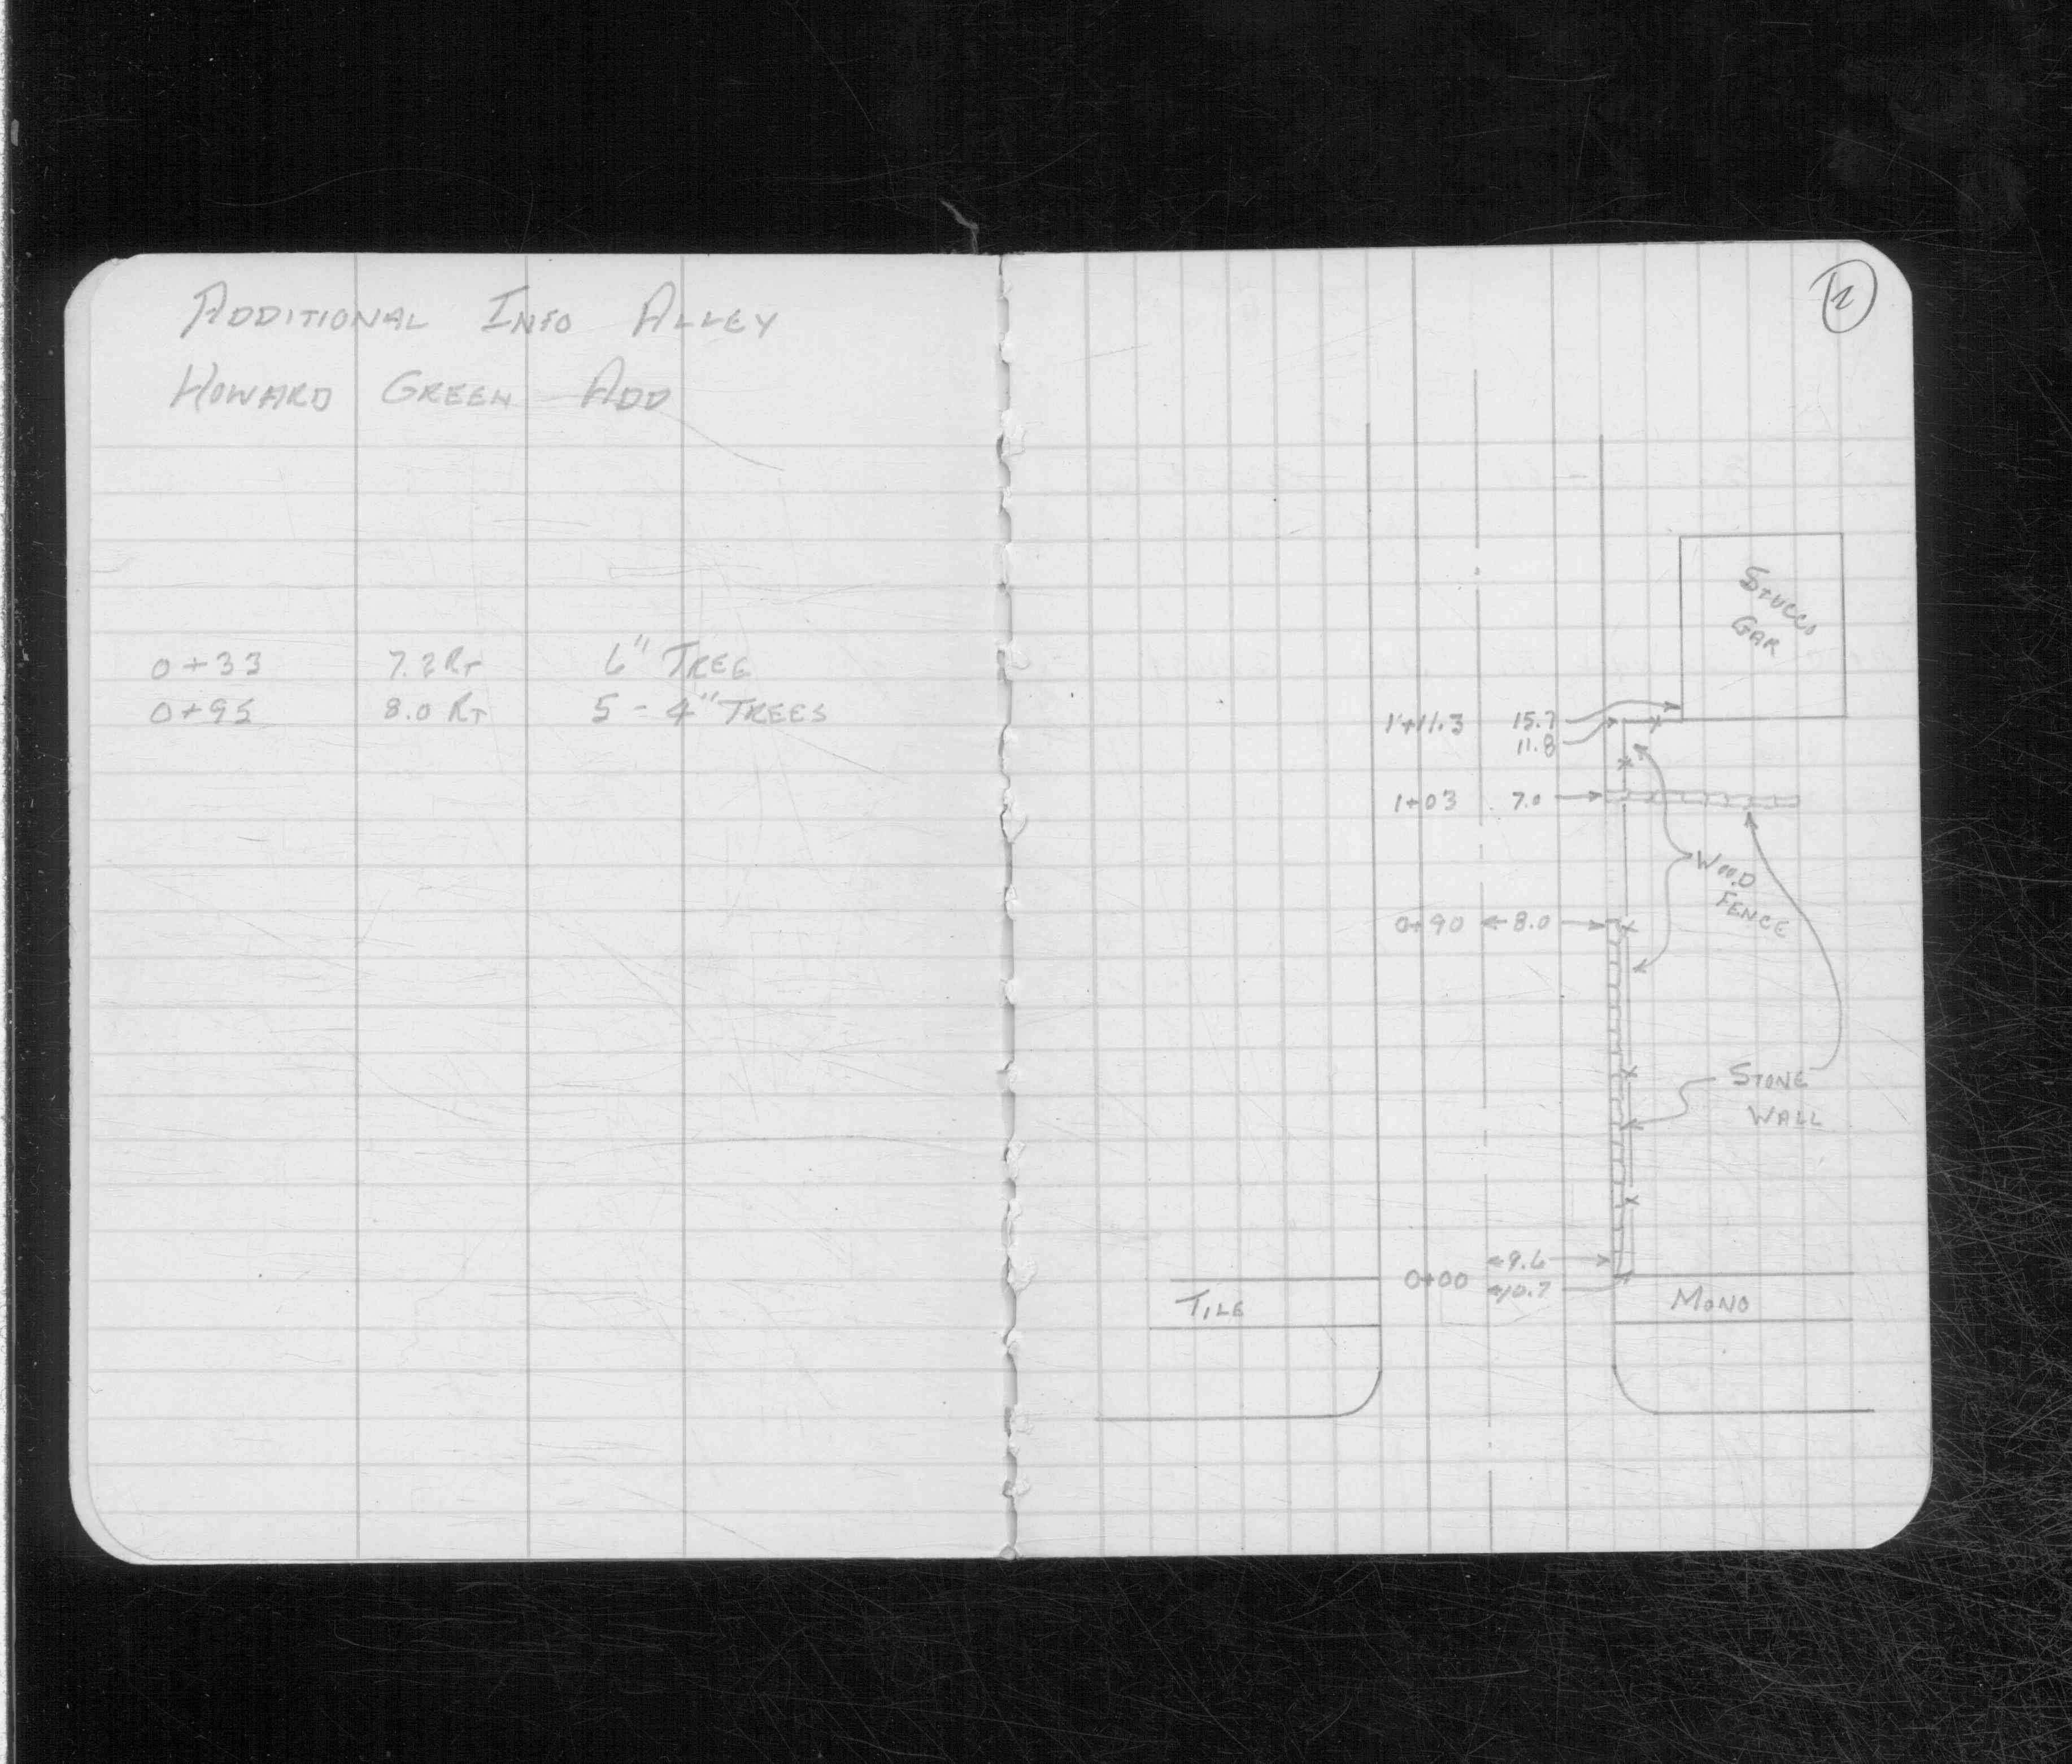 ADDITIONAL INFO ALLEY
HOWARD GREEN ADD
0+33 7.2 RT 6" TREE
0+95 8.0 RT 5 - 4" TREES
STUCCO
GAR
1+11.3 15.7
11.8
1+03 7.0
WOOD
FENCE
0+90 8.0
STONE
WALL
9.6
0+00 10.7
TILE
MONO